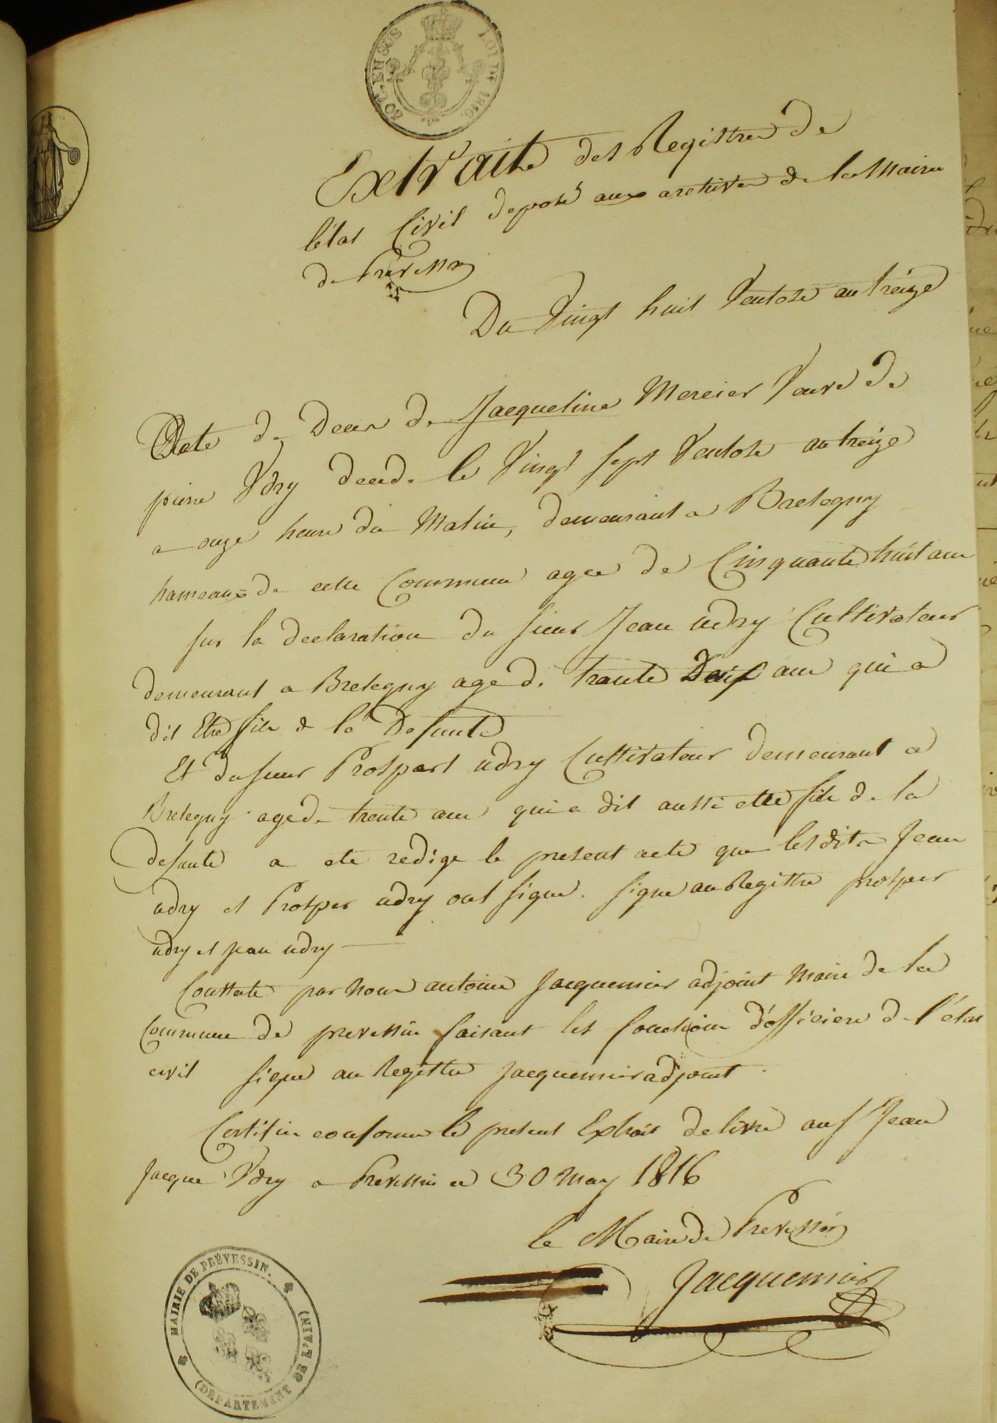 LOI DE 1816.
EN SUS
Extraite des Registre de
létat Civil deposé aux archive de la Mairie
de Prévessin
Du Vingt huit Ventose an treize
Acte de Deces de Jacqueline Mercier Veuve de
pierre Udry deced. le Vingt sept Ventose an treize
a onze heure du Matin, demeurant a Bretegny
hameaux de cette Commune agee de Cinquante huit ans
sur la declaration du sieur Jean udry Cultivateur
demeurant a Bretegny age de trante Deux ans qui a
dit Etre fils de la Defunte
Et du sieur Prospert udry Cultivateur demeurant a
Bretegny age de trente ans qui a dit aussi etre fils de la
defunte a ete redige le present acte que lesdits Jean
udry et Prosper udry ont signe. signe au Registre prosper
udry et jean udry
Constate par Nous antoine Jacquemier adjoint Maire de la
Commune de prevessin faisant les fonction d'officiere de l'état
civil signe au Registre Jacquemier adjoint.
Certifie conforme le present Extrait delivré au s Jean
Jacque Udry a Prevessin ce 30 May 1816
le Maire de Prevessin
Jacquemier
MAIRIE DE PRÉVESSIN.
(DEPARTEMENT DE L'AIN)